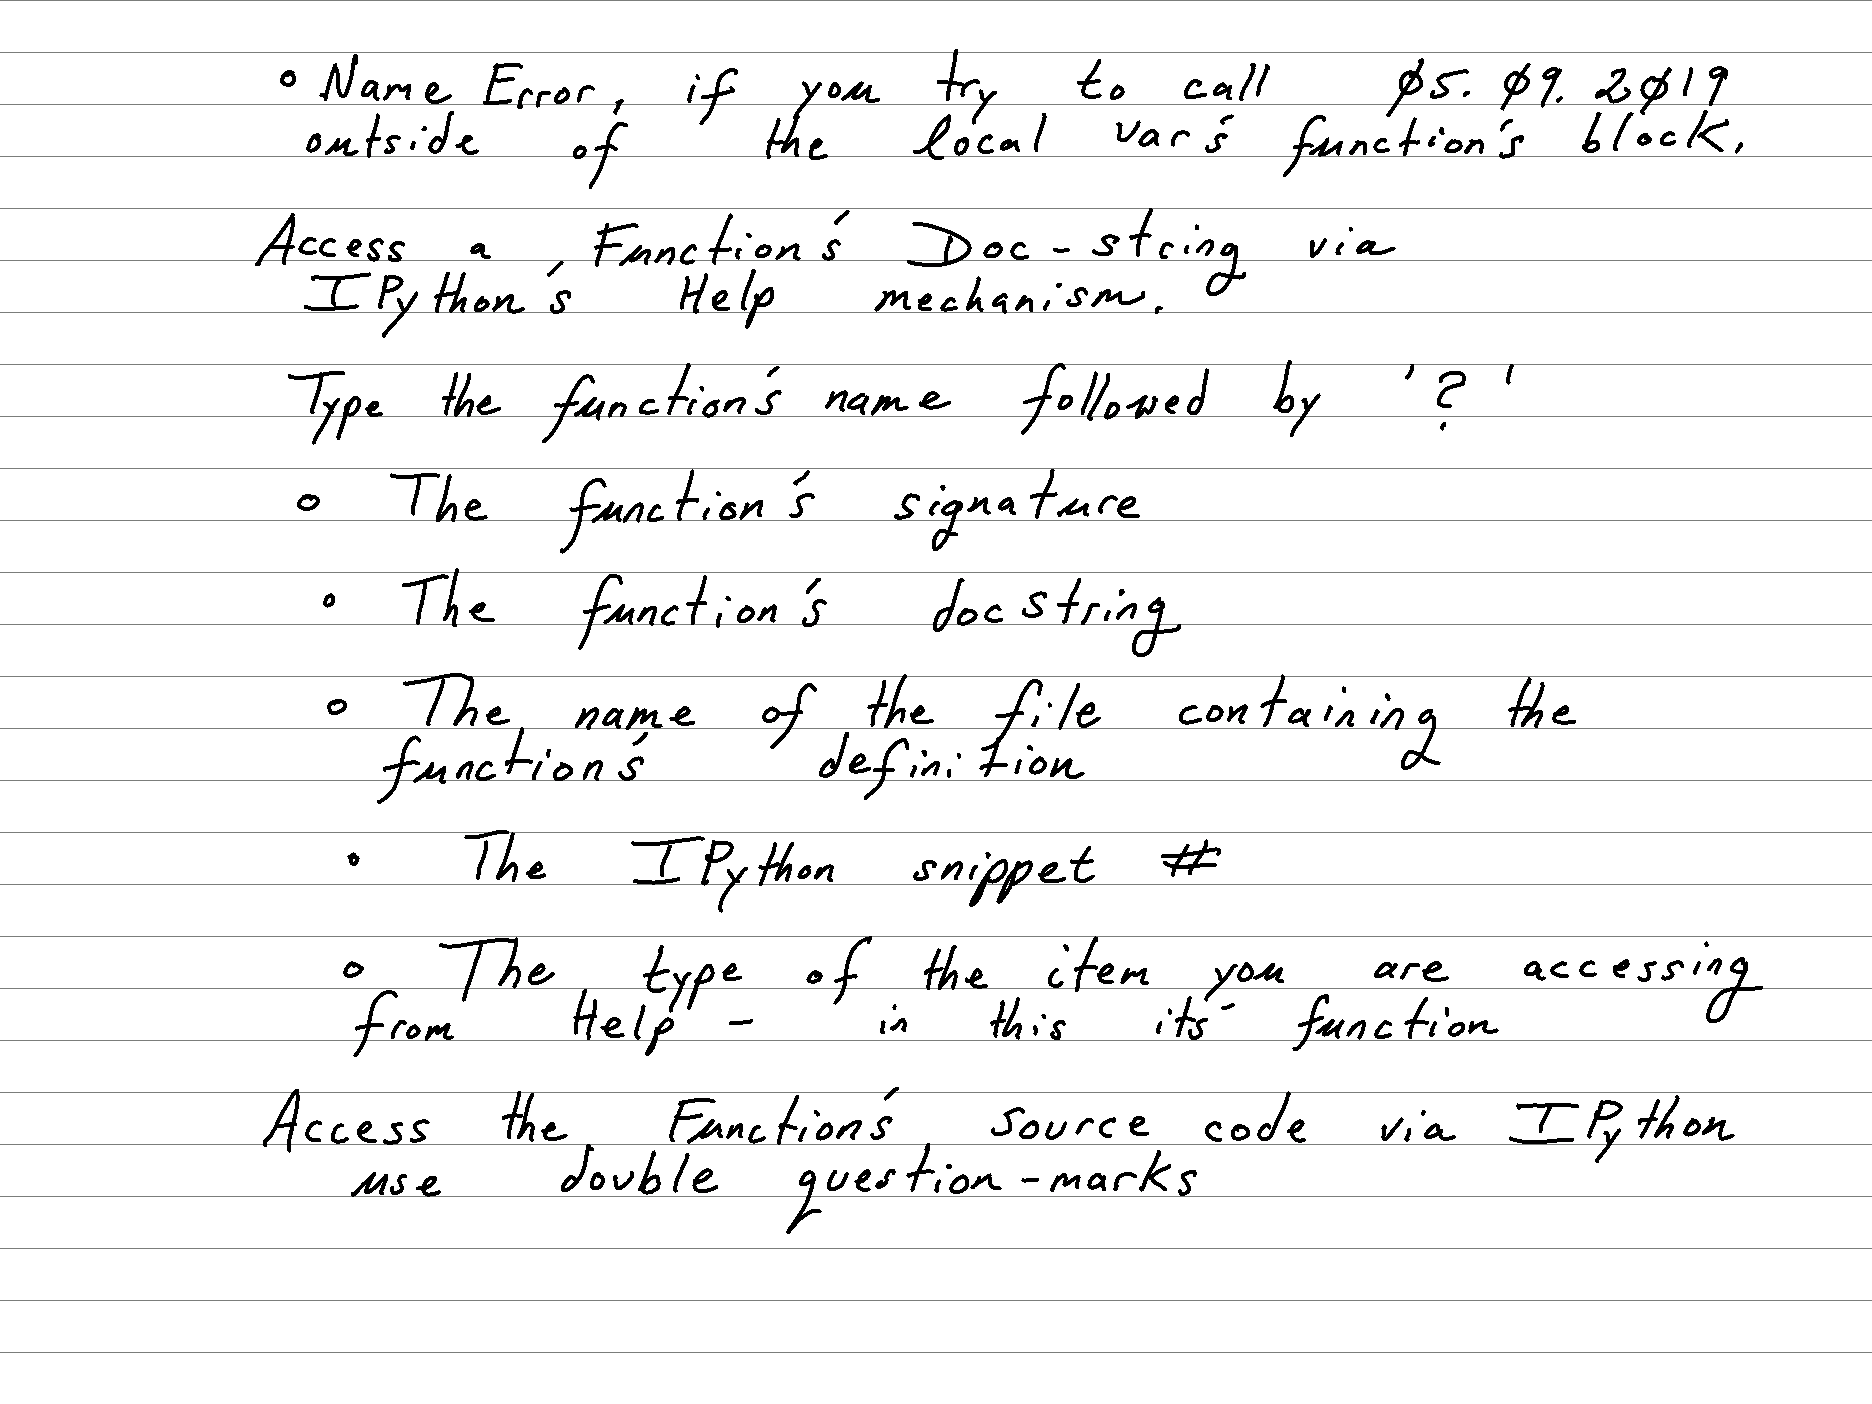 ° Name Error, if you try to call Ø5. Ø9. 2Ø19
outside of the local var's function's block.
Access a Function's Doc-string via
IPython's Help mechanism.
Type the function's name followed by '?'
° The function's signature
° The function's docstring
° The name of the file containing the
function's definition
° The IPython snippet #
° The type of the item you are accessing
from Help - in this its' function
Access the Function's source code via IPython
use double question-marks